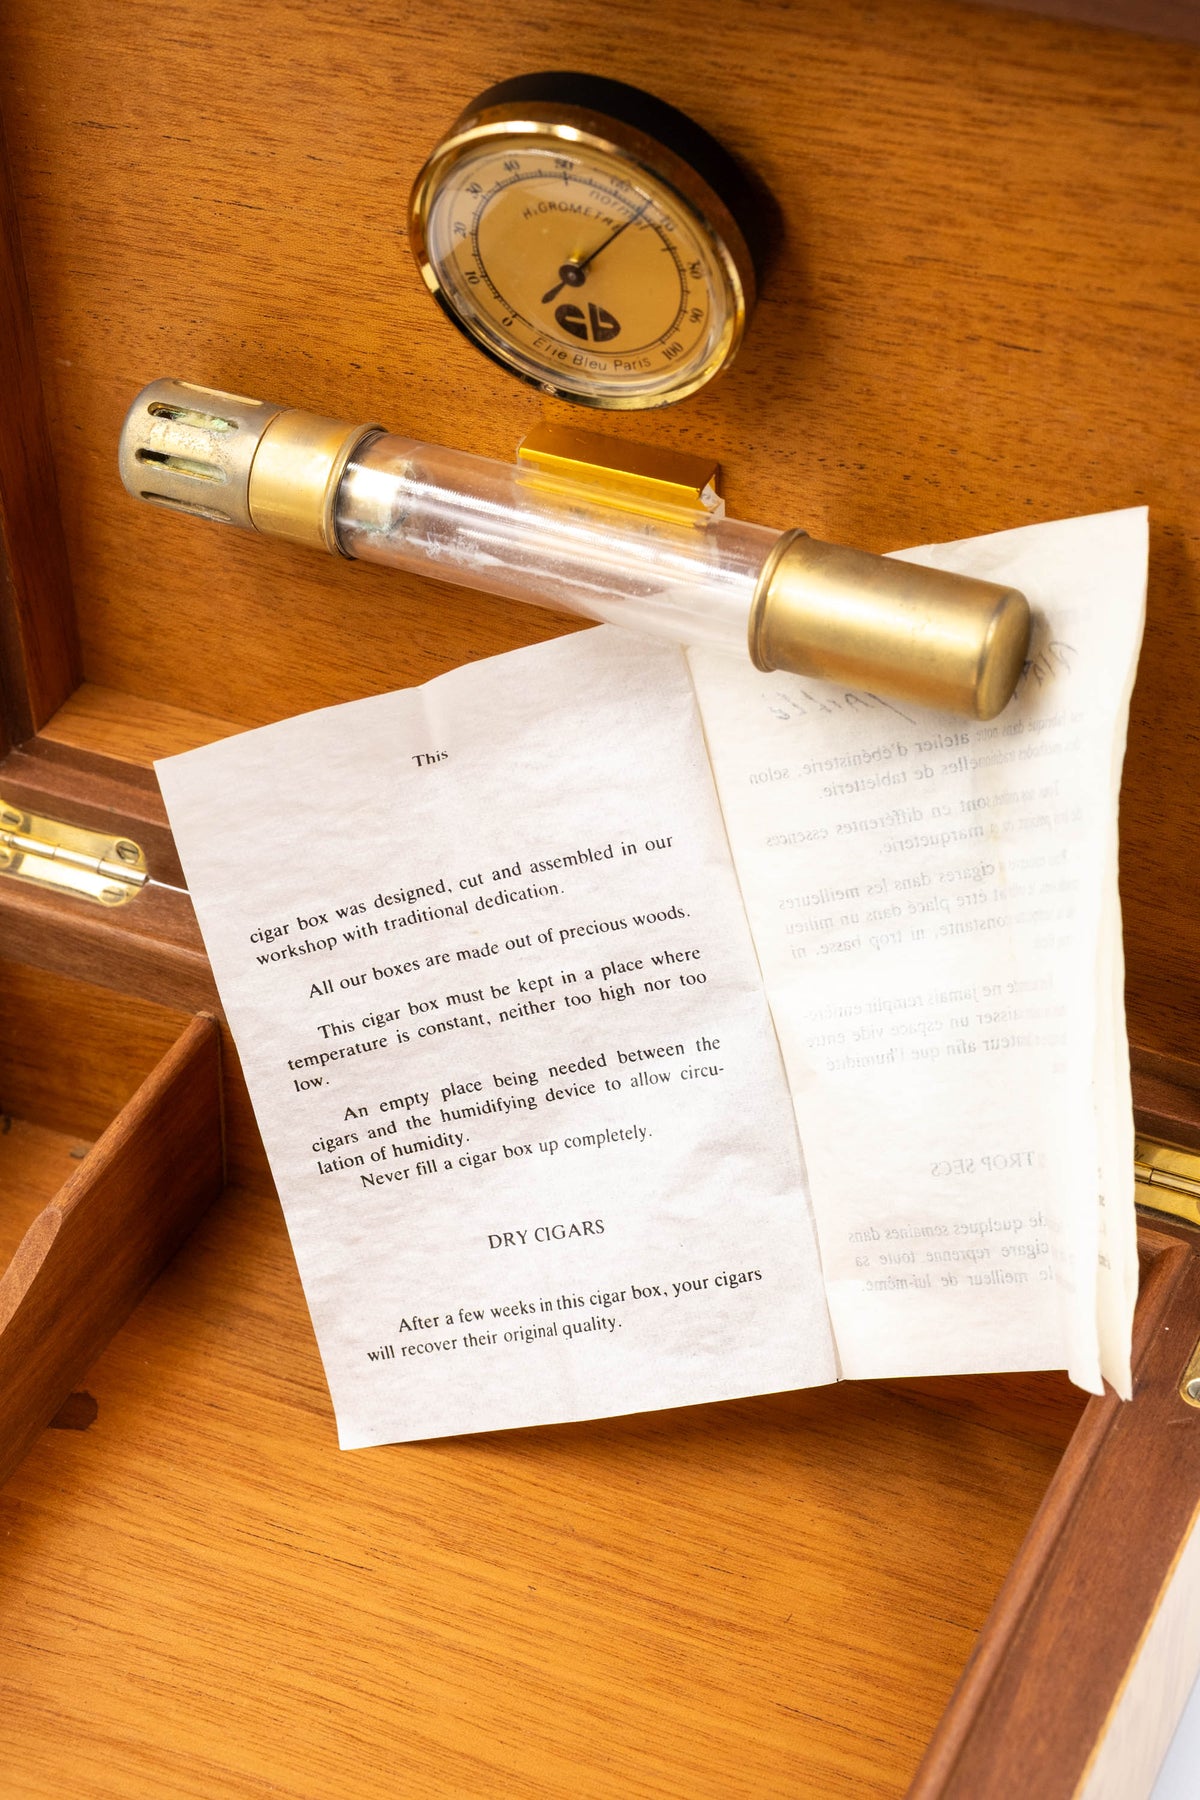 0 10 20 30 40 50 60 70 80 90 100
normal
HYGROMETRE
Elie Bleu Paris
This
cigar box was designed, cut and assembled in our
workshop with traditional dedication.
All our boxes are made out of precious woods.
This cigar box must be kept in a place where
temperature is constant, neither too high nor too
low.
An empty place being needed between the
cigars and the humidifying device to allow circu-
lation of humidity.
Never fill a cigar box up completely.
DRY CIGARS
After a few weeks in this cigar box, your cigars
will recover their original quality.
atelier d'ébénisterie, selon
de tabletterie.
en différentes essences
marqueterie.
cigares dans les meilleures
être placé dans un milieu
constante, ni trop basse, ni
ne jamais remplir entiè-
laisser un espace vide entre
afin que l'humidité
TROP SECS
de quelques semaines dans
cigare reprenne toute sa
le meilleur de lui-même.